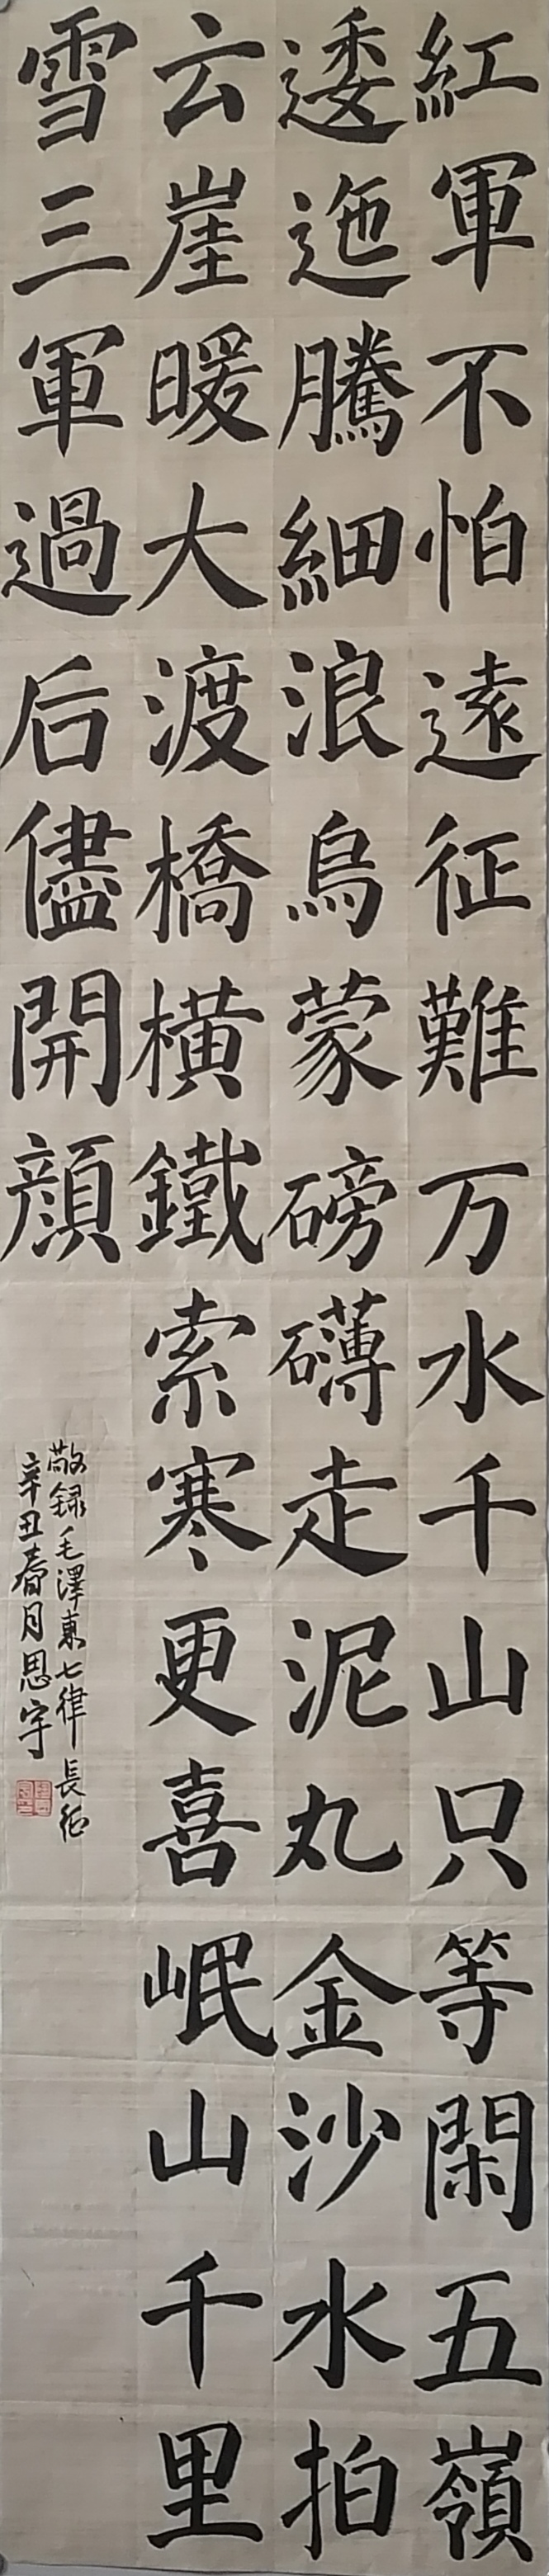 紅軍不怕遠征難万水千山只等閑五嶺
逶迤騰細浪烏蒙磅礴走泥丸金沙水拍
云崖暖大渡橋橫鐵索寒更喜岷山千里
雪三軍過后儘開顔
敬録毛澤東七律長征
辛丑春月思宇